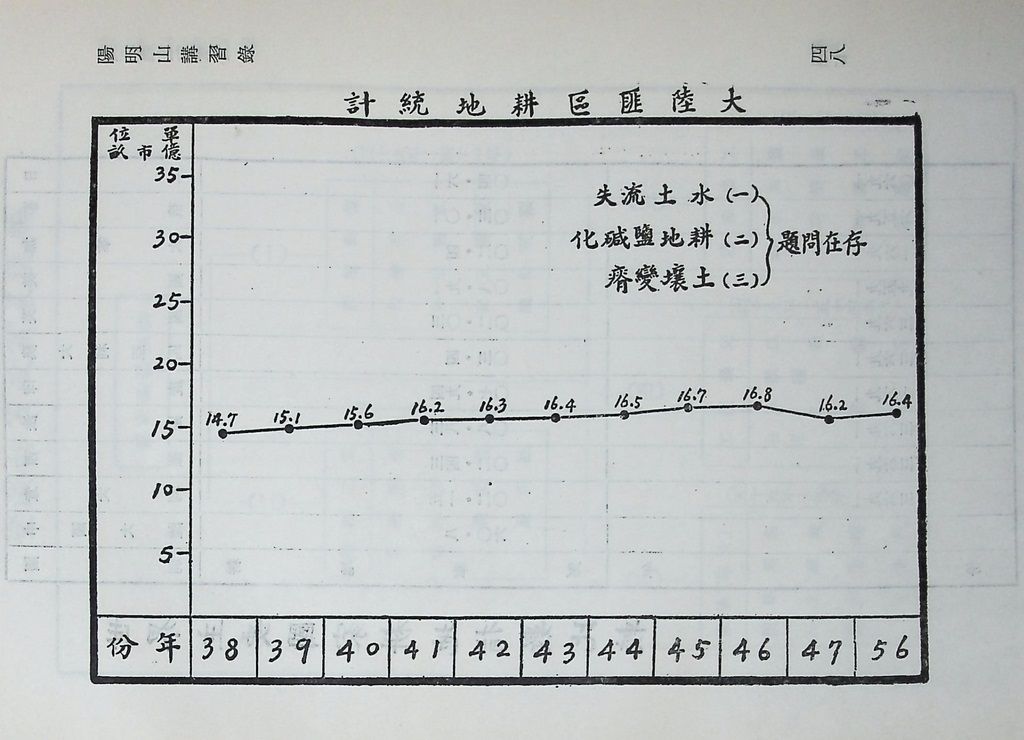 陽明山講習錄
四八
大陸匪區耕地統計
單位
億市畝
35
30
25
20
15
10
5
存在問題
(一)水土流失
(二)耕地鹽碱化
(三)土壤變瘠
14.7 15.1 15.6 16.2 16.3 16.4 16.5 16.7 16.8 16.2 16.4
年份 38 39 40 41 42 43 44 45 46 47 56